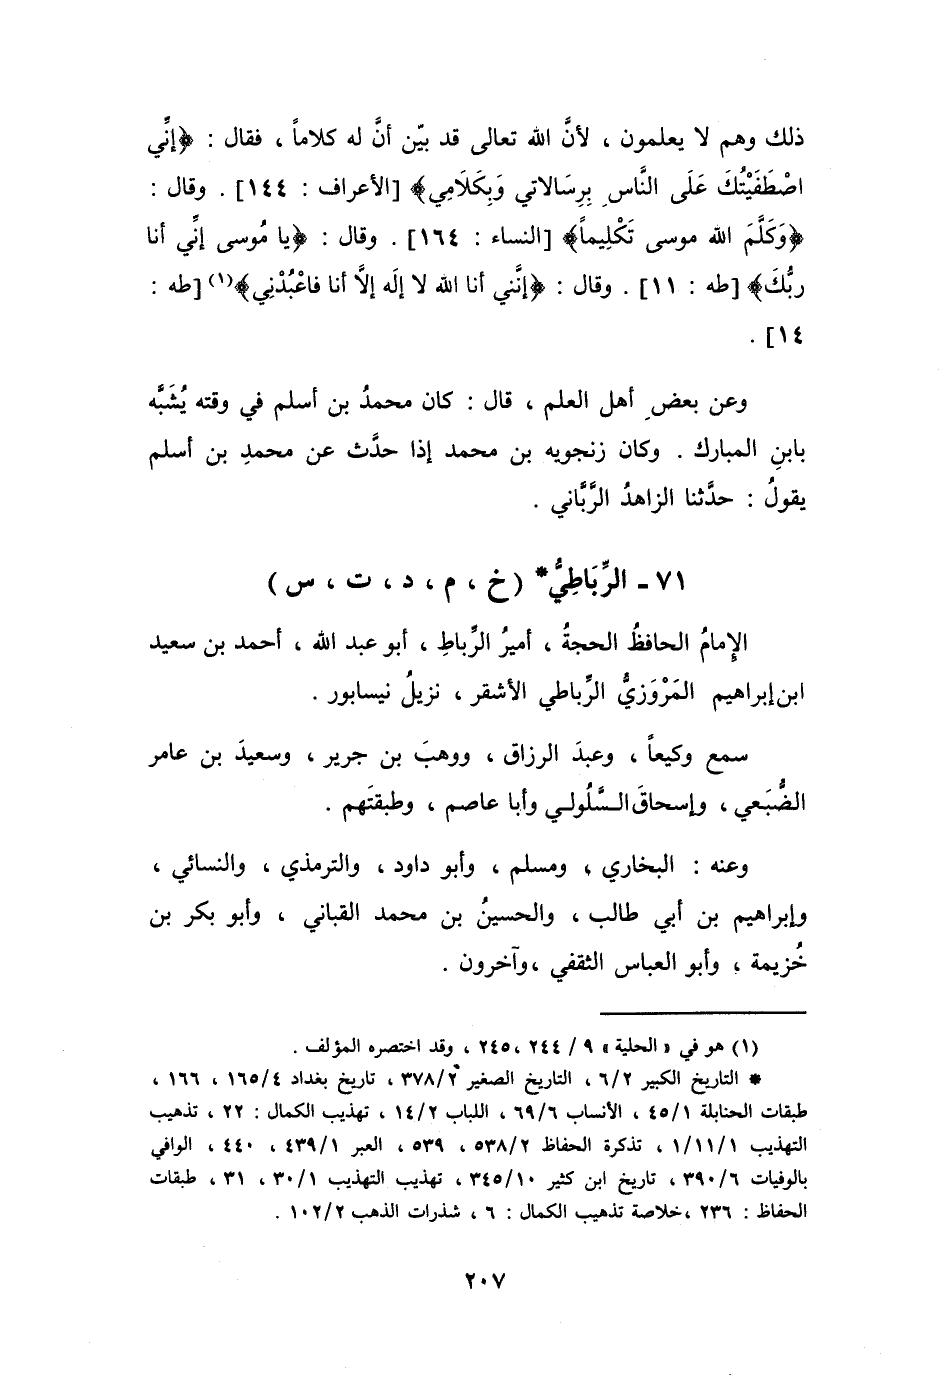 ذلك وهم لا يعلمون ، لأنَّ الله تعالى قد بيّن أنَّ له كلاماً ، فقال : ﴿إنِّي
اصْطَفَيْتُكَ عَلَى النَّاسِ بِرِسَالاتي وَبِكَلَامِي﴾ [الأعراف : ١٤٤] . وقال :
﴿وَكَلَّمَ الله موسى تَكْلِيماً﴾ [النساء : ١٦٤] . وقال : ﴿يا مُوسى إنِّي أنا
ربُّكَ﴾ [طه : ١١] . وقال : ﴿إنَّني أنا الله لا إلَه إلَّا أنا فاعْبُدْنِي﴾(١) [طه :
١٤] .
وعن بعضِ أهل العلم ، قال : كان محمدُ بن أسلم في وقته يُشَبَّه
بابنِ المبارك . وكان زنجويه بن محمد إذا حدَّث عن محمدِ بن أسلم
يقولُ : حدَّثنا الزاهدُ الرَّبَّاني .
٧١ - الرِّبَاطِيُّ* (خ ، م ، د ، ت ، س)
الإِمامُ الحافظُ الحجةُ ، أميرُ الرِّباطِ ، أبو عبد الله ، أحمد بن سعيد
ابن إبراهيم المَرْوَزيُّ الرِّباطي الأشقر ، نزيلُ نيسابور .
سمع وكيعاً ، وعبدَ الرزاق ، ووهبَ بن جرير ، وسعيدَ بن عامر
الضُّبَعي ، وإسحاقَ السَّلُولي وأبا عاصم ، وطبقتَهم .
وعنه : البخاري ، ومسلم ، وأبو داود ، والترمذي ، والنسائي ،
وإبراهيم بن أبي طالب ، والحسينُ بن محمد القباني ، وأبو بكر بن
خُزيمة ، وأبو العباس الثقفي ،وآخرون .
(١) هو في « الحلية » ٩ / ٢٤٤ ،٢٤٥ ، وقد اختصره المؤلف .
* التاريخ الكبير ٦/٢ ، التاريخ الصغير ٣٧٨/٢ ، تاريخ بغداد ١٦٥/٤ ، ١٦٦ ،
طبقات الحنابلة ٤٥/١ ، الأنساب ٦٩/٦ ، اللباب ١٤/٢ ، تهذيب الكمال : ٢٢ ، تذهيب
التهذيب ١/١١/١ ، تذكرة الحفاظ ٥٣٨/٢ ، ٥٣٩ ، العبر ٤٣٩/١ ، ٤٤٠ ، الوافي
بالوفيات ٣٩٠/٦ ، تاريخ ابن كثير ٣٤٥/١٠ ، تهذيب التهذيب ٣٠/١ ، ٣١ ، طبقات
الحفاظ : ٢٣٦ ،خلاصة تذهيب الكمال : ٦ ، شذرات الذهب ١٠٢/٢ .
٢٠٧